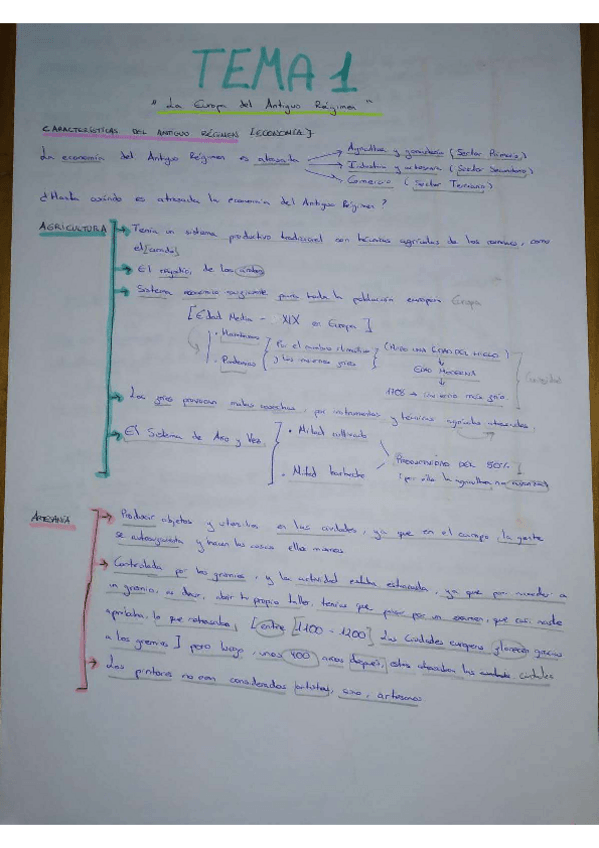 TEMA 1
"La Europa del Antiguo Régimen"
CARACTERÍSTICAS DEL ANTIGUO RÉGIMEN [ECONOMÍA]
La economía del Antiguo Régimen es atrasada
Agricultura y ganadería (Sector Primario)
Industria y artesanía (Sector Secundario)
Comercio (Sector Terciario)
¿Hasta cuándo es atrasada la economía del Antiguo Régimen?
AGRICULTURA
Tenía un sistema productivo tradicional con técnicas agrícolas de los romanos, como
el [arado]
El de los
Sistema economía para toda la población europea Europa
[Edad Media - XIX en Europa]
Hambrunas
Pandemias
Por el cambio climático
y las malas
(HUBO UNA GRAN DEL HIELO)
EDAD MODERNA
1708 → invierno más frío
Los fríos provocan malas cosechas, por instrumentos y técnicas agrícolas atrasadas.
El Sistema de Año y Vez
Mitad cultivada
Mitad barbecho
PRODUCTIVIDAD DEL
(por ello la agricultura no
ARTESANÍA
Producir objetos y utensilios en las ciudades, ya que en el campo, la gente
se autoabastecía y hacen las cosas ellos mismos.
Controlada por los gremios, y la actividad estaba estancada, ya que por acceder a
un gremio, es decir, abrir tu propio taller, tenías que pasar por un examen, que casi nadie
aprobaba, lo que retrasaba, [entre [1100 - 1200] Las ciudades europeas florecen gracias
a los gremios] pero luego, unos 400 años después, estos atrasaban las ciudades
Los pintores no eran considerados artistas, sino, artesanos